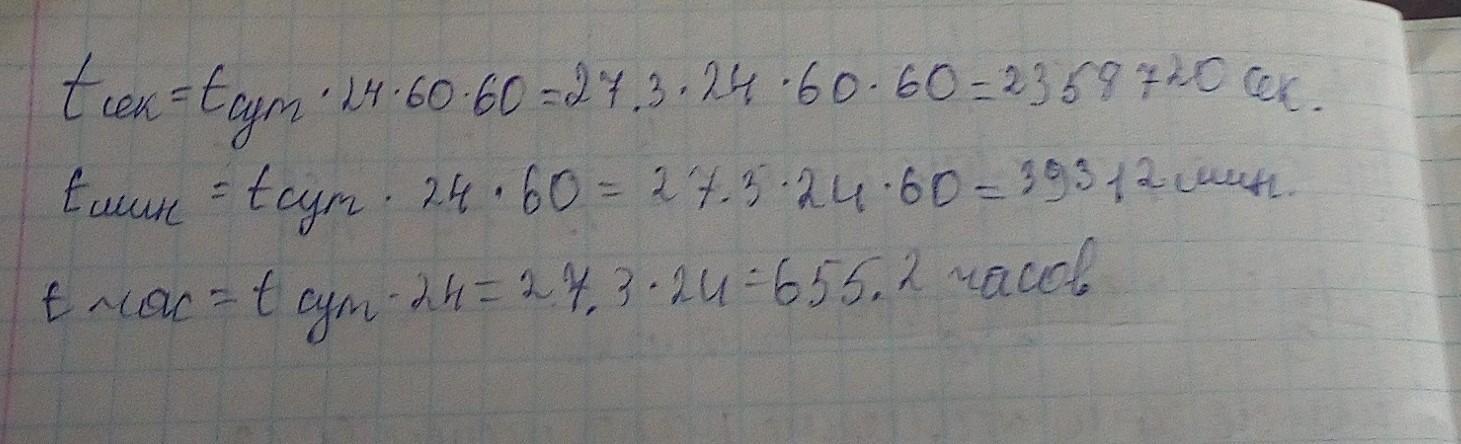 tсек = tсут · 24 · 60 · 60 = 27.3 · 24 · 60 · 60 = 2358720 сек.
tмин = tсут · 24 · 60 = 27.3 · 24 · 60 = 39312 мин.
t час = t сут · 24 = 27.3 · 24 = 655.2 часов